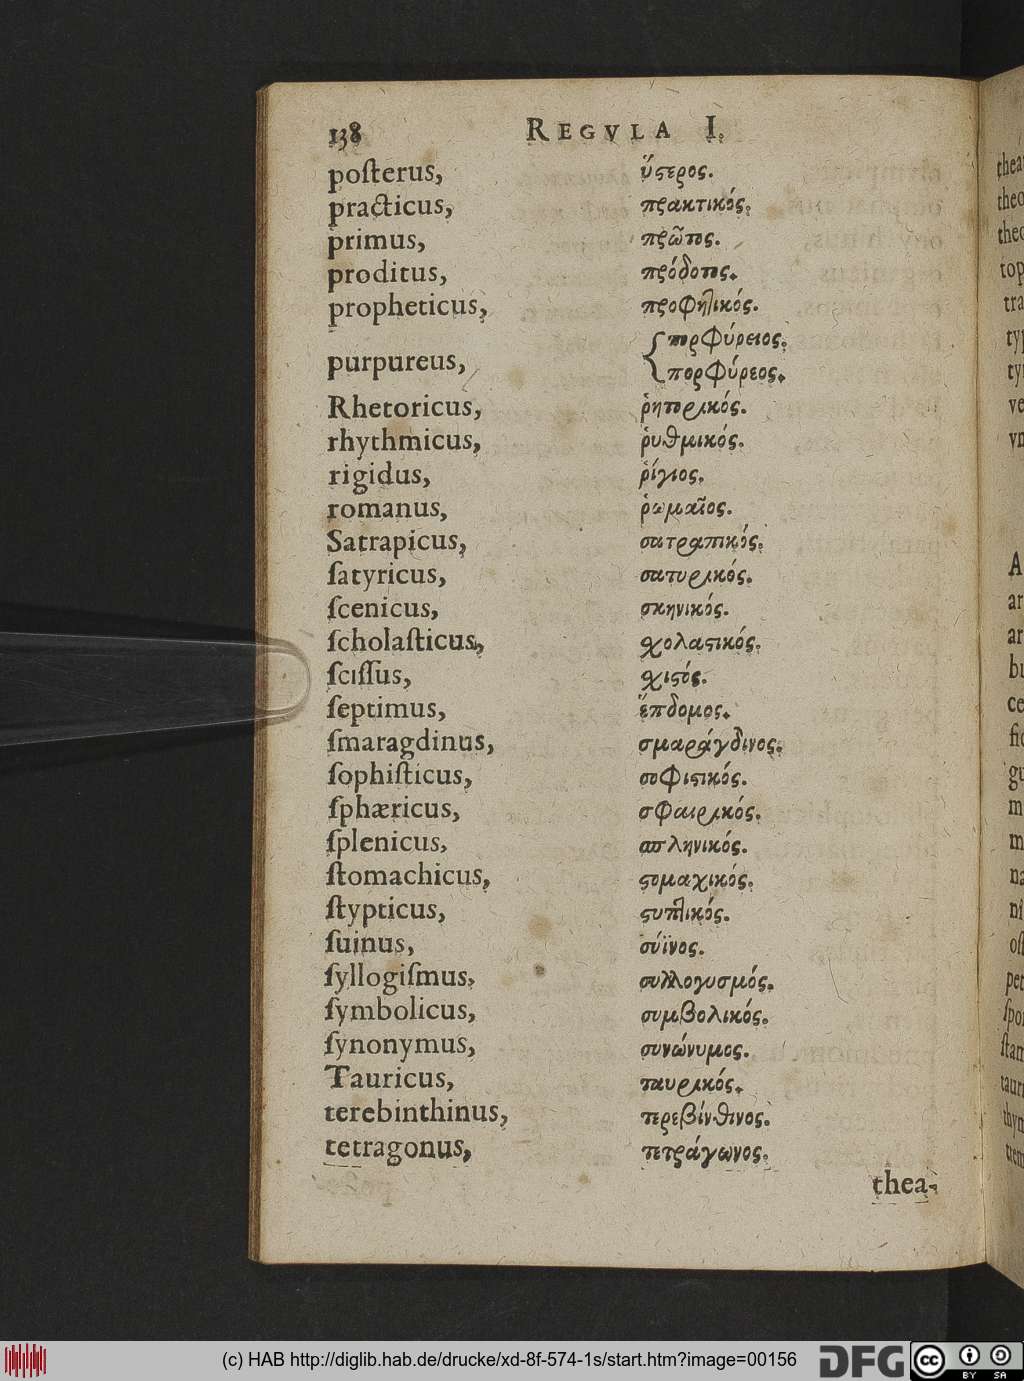 138 REGVLA I.
poſterus, ὕϛερος.
practicus, πρακτικός.
primus, πρῶτος.
proditus, πρόδοτος.
propheticus, προφητικός.
πορφύρειος.
purpureus,
πορφύρεος.
Rhetoricus, ῥητορικός.
rhythmicus, ῥυθμικός.
rigidus, ῥίγιος.
romanus, ῥωμαῖος.
Satrapicus, σατραπικός.
ſatyricus, σατυρικός.
ſcenicus, σκηνικός.
ſcholaſticus, σχολαϛικός.
ſciſſus, σχιϛός.
ſeptimus, ἕπδομος.
ſmaragdinus, σμαράγδινος.
ſophiſticus, σοφιϛικός.
ſphæricus, σφαιρικός.
ſplenicus, σπληνικός.
ſtomachicus, ϛομαχικός.
ſtypticus, ϛυπτικός.
ſuinus, σύϊνος.
ſyllogiſmus, συλλογυσμός.
ſymbolicus, συμβολικός.
ſynonymus, συνώνυμος.
Tauricus, ταυρικός.
terebinthinus, τερεβίνθινος.
tetragonus, τετράγωνος.
thea-
(c) HAB http://diglib.hab.de/drucke/xd-8f-574-1s/start.htm?image=00156
DFG
cc BY SA